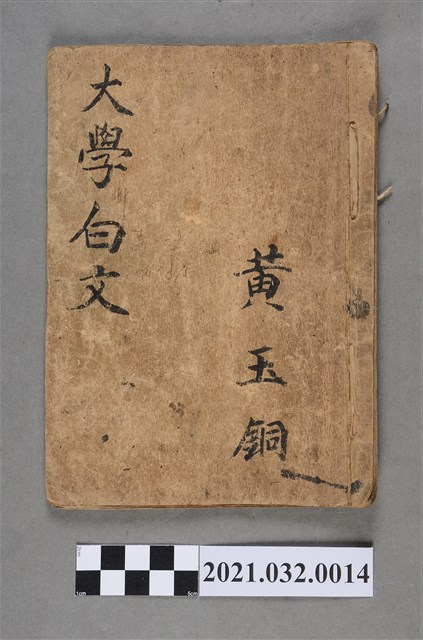 大學白文
黃玉銅
2021.032.0014
1cm
5cm